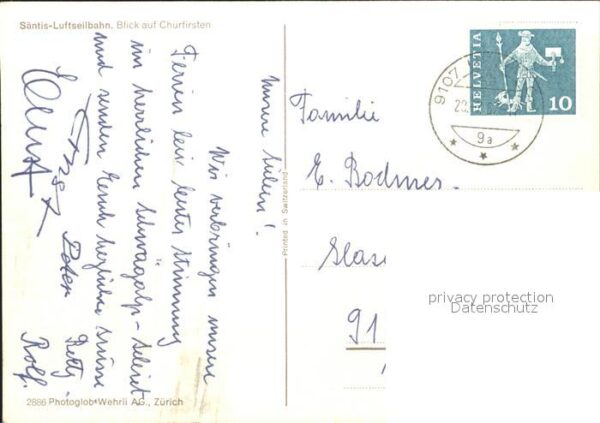 Säntis-Luftseilbahn. Blick auf Churfirsten
Meine Lieben!
Wir verbringen unsere
Ferien bei bester Stimmung
im herrlichen Schwägalp-Gebiet
und senden Euch herzliche Grüsse
Ernst
Peter
Betty
Rolf.
2886 Photoglob-Wehrli AG., Zürich
Printed in Switzerland
HELVETIA
10
9107
20.
9a
Familie
E. Bodmer.
Glas
91
privacy protection
Datenschutz